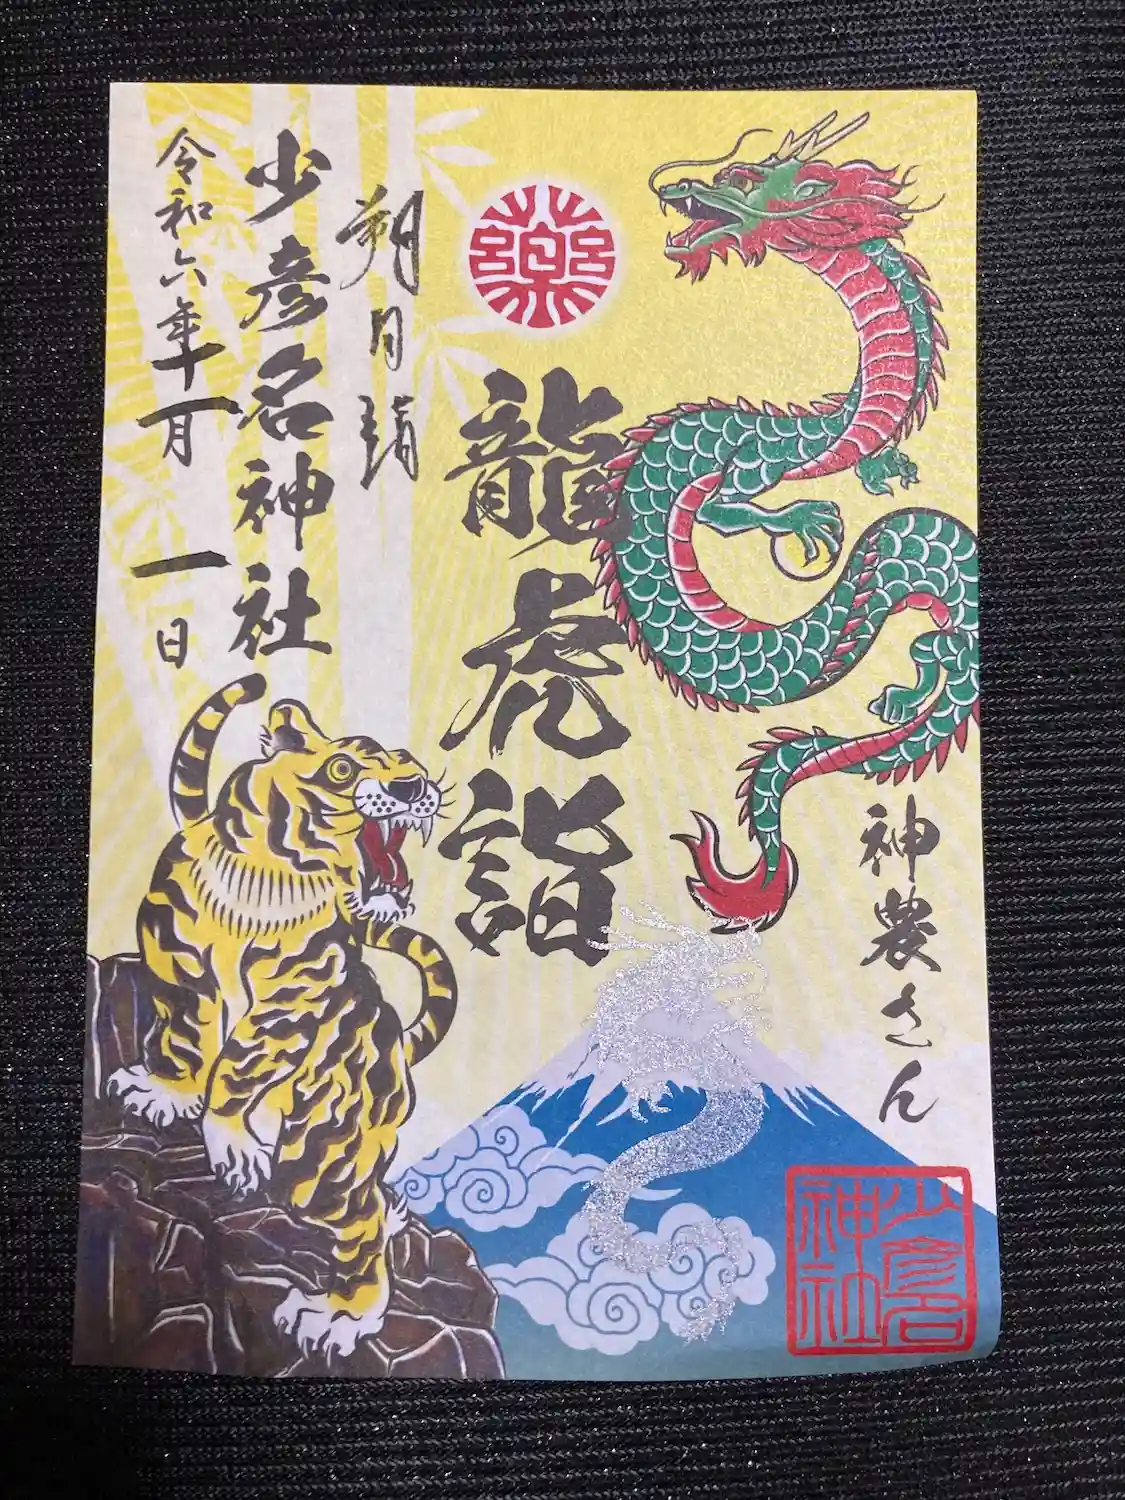 神農さん
藥
龍虎詣
朔日詣
少彦名神社
令和六年一月一日
少彦名神社